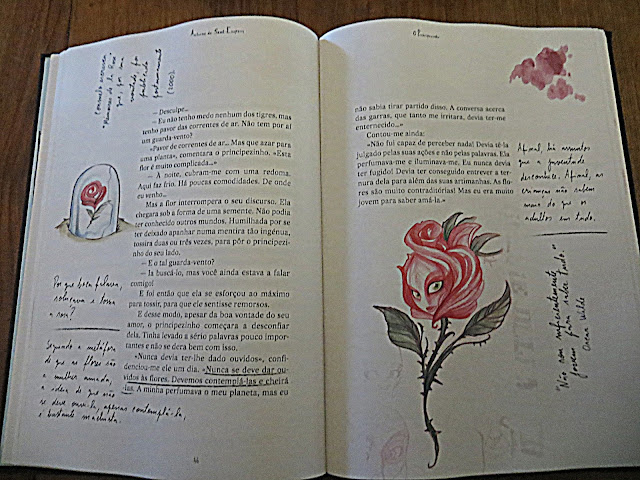 Antoine de Saint-Exupéry
— Desculpe...
— Eu não tenho medo nenhum dos tigres, mas
tenho pavor das correntes de ar. Não tem por aí
um guarda-vento?
«Pavor de correntes de ar... Mas que azar para
uma planta», comentara o principezinho. «Esta
flor é muito complicada...»
— À noite, cubram-me com uma redoma.
Aqui faz frio. Há poucas comodidades. De onde
eu venho...
Mas a flor interrompera o seu discurso. Ela
chegara sob a forma de uma semente. Não podia
ter conhecido outros mundos. Humilhada por se
ter deixado apanhar numa mentira tão ingénua,
tossira duas ou três vezes, para pôr o principezi-
nho do seu lado.
— E o tal guarda-vento?
— Ia buscá-lo, mas você ainda estava a falar
comigo!
E foi então que ela se esforçou ao máximo
para tossir, para que ele sentisse remorsos.
E desse modo, apesar da boa vontade do seu
amor, o principezinho começara a desconfiar
dela. Tinha levado a sério palavras pouco impor-
tantes e não se dera bem com isso.
«Nunca devia ter-lhe dado ouvidos», confi-
denciou-me ele um dia. «Nunca se deve dar ou-
vidos às flores. Devemos contemplá-las e cheirá-
-las. A minha perfumava o meu planeta, mas eu
Por que bota palavra,
começara e tossa
a rosa?
Segundo a metáfora
de que as flores são
a mulher amada,
a ideia de que não
se deve ouvi-la, apenas contemplá-la,
é bastante machista.
44
O Principezinho
não sabia tirar partido disso. A conversa acerca
das garras, que tanto me irritara, devia ter-me
enternecido...»
Contou-me ainda:
«Não fui capaz de perceber nada! Devia tê-la
julgado pelas suas ações e não pelas palavras. Ela
perfumava-me e iluminava-me. Eu nunca devia
ter fugido! Devia ter conseguido entrever a ter-
nura dela para além das suas artimanhas. As flo-
res são muito contraditórias! Mas eu era muito
jovem para saber amá-la.»
Afinal, há assuntos
que a juventude
desconhece. Afinal, as
crianças não sabem
mais do que os
adultos em tudo.
"Não sou suficientemente
jovem para saber tudo."
Oscar Wilde